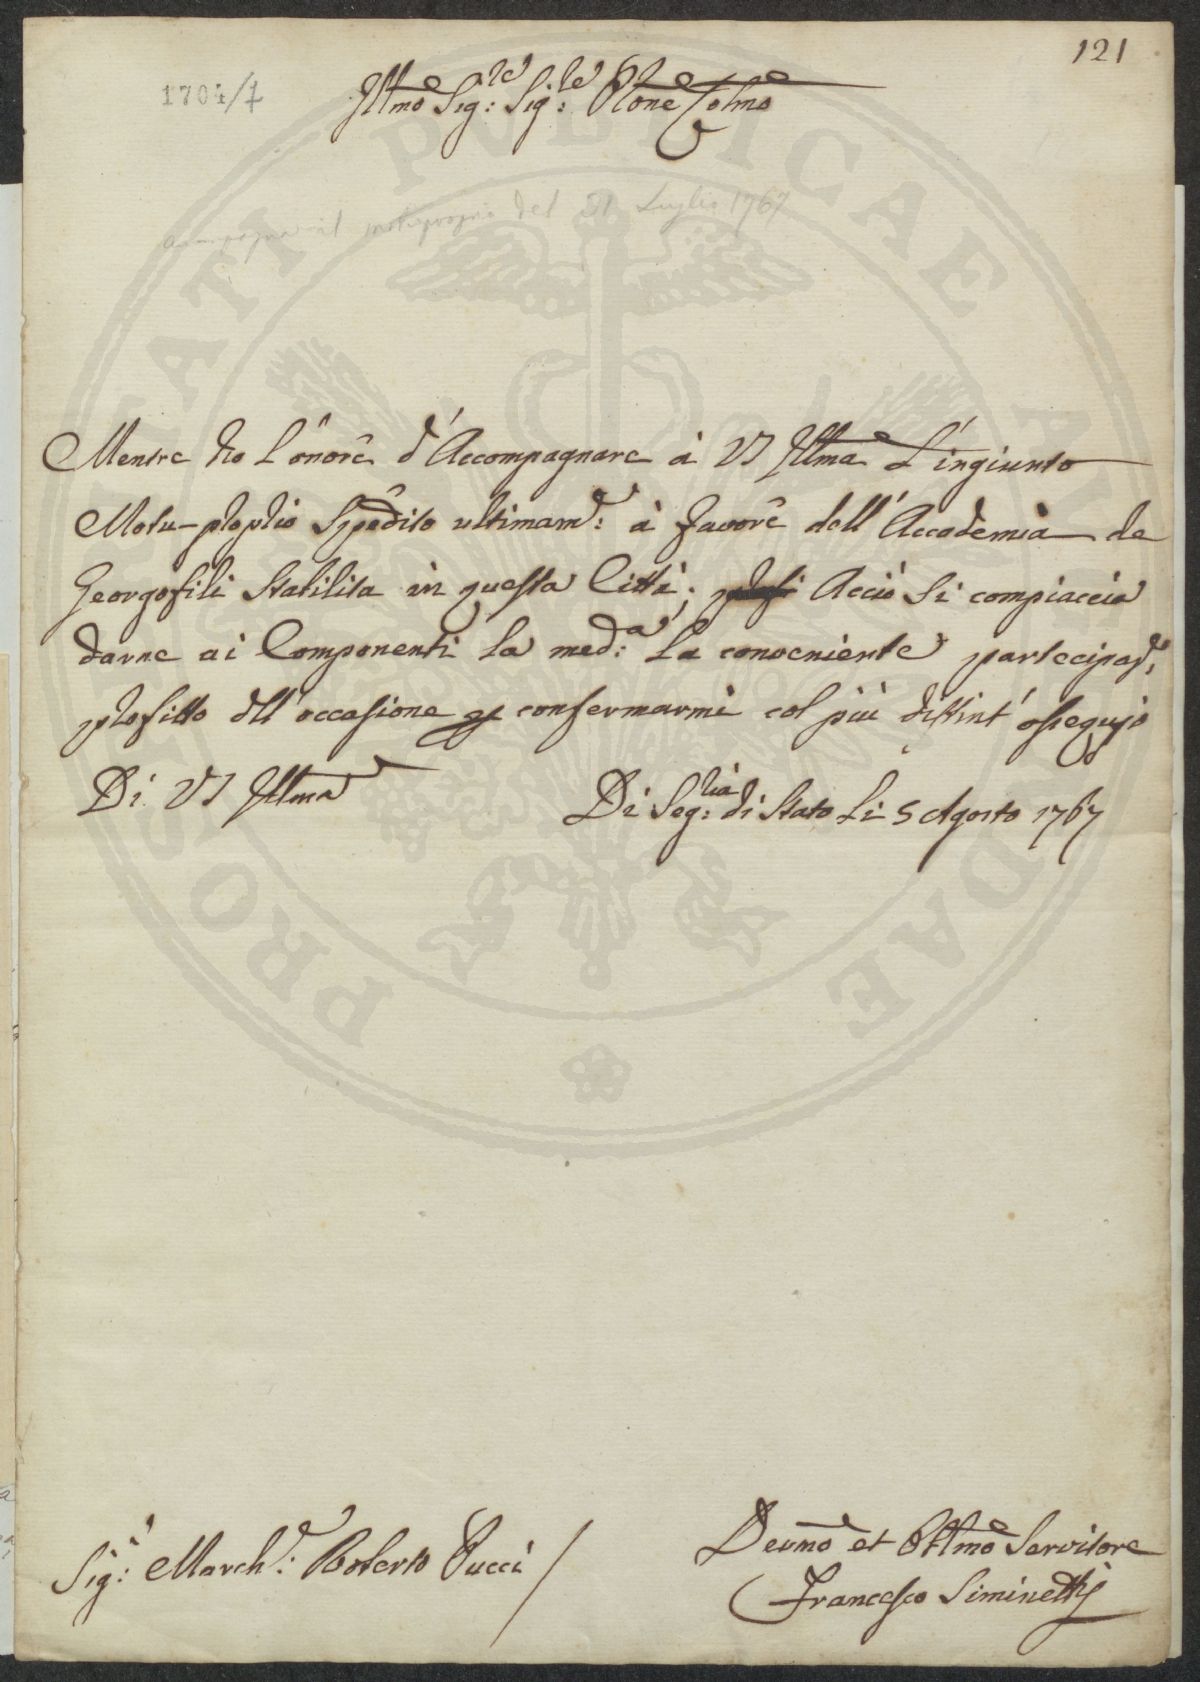 121
1704/7
Illmo Sig:re Sig:re Pne Colmo
accompagna il motuproprio del 31 Luglio 1767
Mentre ho l'onore d'Accompagnare à VS Illma L'ingiunto
Motu-proprio Spedito ultimamte: à favore dell'Accademia de
Georgofili Stabilita in questa Città; Acciò Si compiaccia
darne ai Componenti la med:a La conveniente partecipaz:e,
profitto dll'occasione p confermarmi col più distint'ossequjo
Di VS Illma
Di Seg:ria di Stato Li 5 Agosto 1767
Sig:r March:e Roberto Pucci
Devmo et Obblmo Servitore
Francesco Siminetti
PROSPERITATI PUBLICAE AUGENDAE